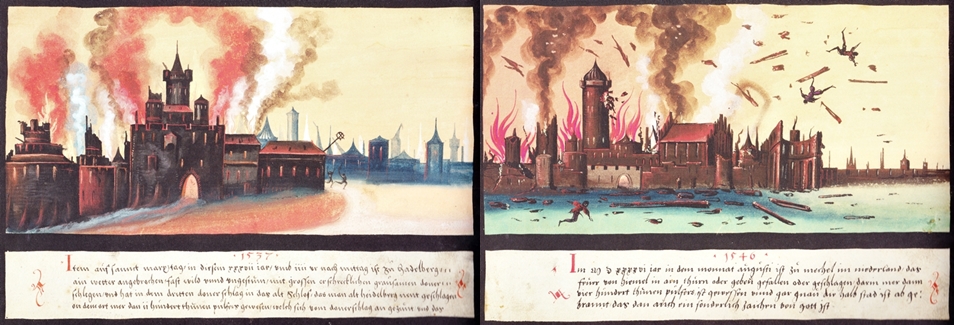 · 1537 ·
Item auf sannt marx tag in diesem xxxvii iar vmd vm vr nach mittag ist zu Hadelberg ein
am wetter angebrochen fast wild vnnd vngestüm mit grossen erschrecklichen grausamen doner
schlegen vnd hat in dem dritten doner schlag in das alt Schloß das man alt heidelberg nent geschlagen
an dem ort mer dan ii hundert thunen pulfers gewesen welch sich vom donerschlag an gezint vnd das
· 1546 ·
Im M D xxxxvi iar in dem monnat augusti ist zu mechel im niderland das
feüer von hiemel in ain thurn oder geben gefallen oder geschlagen darin mer dann
vier hundert thunen pulfers ist gewessen vnnd gar nahn die halb stad ist ab ge
brannt das dan auch ein sonderlich zaichen von Got ist